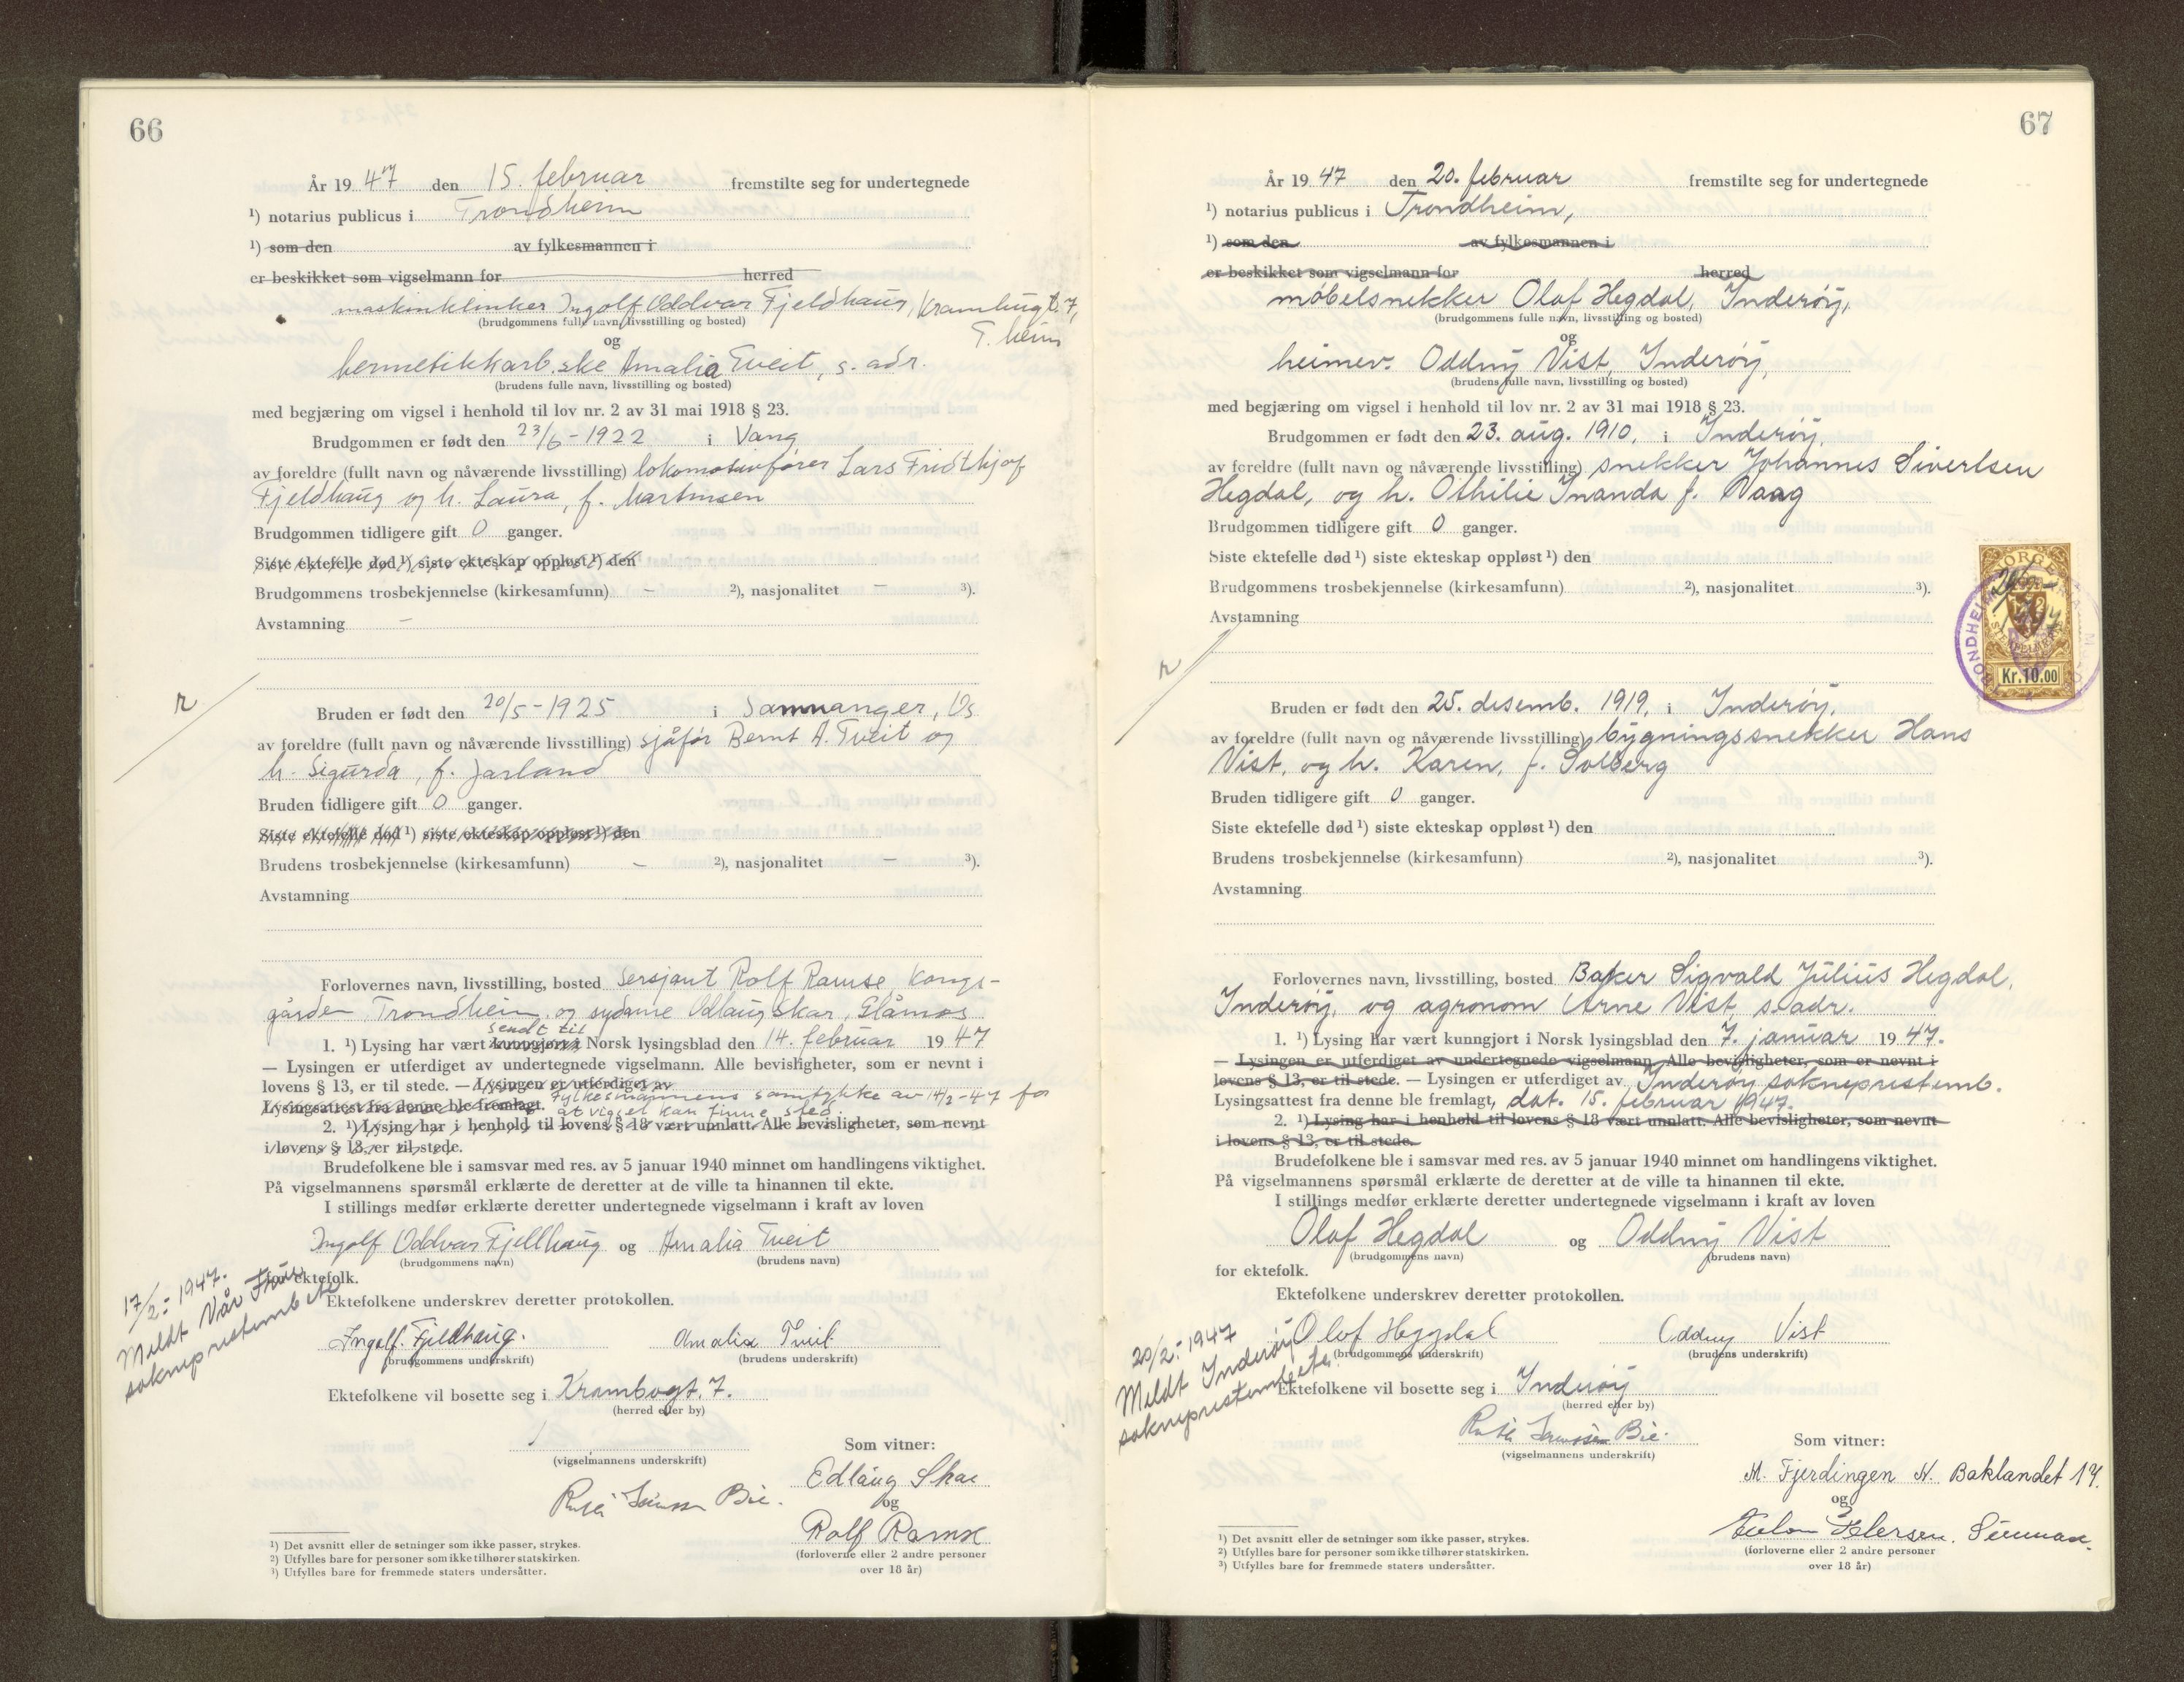 66
År 1947 den 15. februar fremstilte seg for undertegnede
¹) notarius publicus i Trondheim
¹) som den av fylkesmannen i
er beskikket som vigselmann for herred
maskinklinker Ingolf Oddvar Fjeldhaug, Krambugt. 7,
(brudgommens fulle navn, livsstilling og bosted)
T.heim
og
hermetikkarb.ske Amalia Tveit, s. adr.
(brudens fulle navn, livsstilling og bosted)
med begjæring om vigsel i henhold til lov nr. 2 av 31 mai 1918 § 23.
Brudgommen er født den 23/6-1922 i Vang
av foreldre (fullt navn og nåværende livsstilling) lokomotivfører Lars Fridthjof
Fjeldhaug og h. Laura, f. Martinsen
Brudgommen tidligere gift 0 ganger.
Siste ektefelle død ¹) siste ekteskap oppløst ¹) den
Brudgommens trosbekjennelse (kirkesamfunn) - ²), nasjonalitet - ³).
Avstamning -
r
Bruden er født den 20/5-1925 i Samnanger, Os
av foreldre (fullt navn og nåværende livsstilling) sjåfør Bernt A. Tveit og
h. Sigurda, f. Jarland
Bruden tidligere gift 0 ganger.
Siste ektefelle død ¹) siste ekteskap oppløst ¹) den
Brudens trosbekjennelse (kirkesamfunn) - ²), nasjonalitet - ³).
Avstamning
Forlovernes navn, livsstilling, bosted Sersjant Rolf Ramse, Kongs-
gården, Trondheim, og sydame Edlaug Skar, Glåmos
sendt til
1. ¹) Lysing har vært kunngjort i Norsk lysingsblad den 14. februar 1947
— Lysingen er utferdiget av undertegnede vigselmann. Alle bevisligheter, som er nevnt i
lovens § 13, er til stede. — Lysingen er utferdiget av
Fylkesmannens samtykke av 14/2-47 for
Lysingsattest fra denne ble fremlagt. at vigsel kan finne sted.
2. ¹) Lysing har i henhold til lovens § 18 vært unnlatt. Alle bevisligheter, som nevnt
i lovens § 13, er til stede.
Brudefolkene ble i samsvar med res. av 5 januar 1940 minnet om handlingens viktighet.
På vigselmannens spørsmål erklærte de deretter at de ville ta hinannen til ekte.
I stillings medfør erklærte deretter undertegnede vigselmann i kraft av loven
Ingolf Oddvar Fjellhaug og Amalia Tveit
(brudgommens navn) (brudens navn)
for ektefolk.
17/2.- 1947.
Meldt Vår Frue
sokneprestembete
Ektefolkene underskrev deretter protokollen.
Ingolf. Fjeldhaug. Amalia Tveit
(brudgommens underskrift) (brudens underskrift)
Ektefolkene vil bosette seg i Krambugt. 7.
(herred eller by)
(vigselmannens underskrift)
Som vitner:
Edlaug Skar
og
Rolf Ramse
(forloverne eller 2 andre personer
over 18 år)
¹) Det avsnitt eller de setninger som ikke passer, strykes.
²) Utfylles bare for personer som ikke tilhører statskirken.
³) Utfylles bare for fremmede staters undersåtter.
67
År 1947 den 20. februar fremstilte seg for undertegnede
¹) notarius publicus i Trondheim,
¹) som den av fylkesmannen i
er beskikket som vigselmann for herred
møbelsnekker Olaf Hegdal, Inderøy,
(brudgommens fulle navn, livsstilling og bosted)
og
heimev. Oddny Vist, Inderøy,
(brudens fulle navn, livsstilling og bosted)
med begjæring om vigsel i henhold til lov nr. 2 av 31 mai 1918 § 23.
Brudgommen er født den 23. aug. 1910, i Inderøy,
av foreldre (fullt navn og nåværende livsstilling) snekker Johannes Sivertsen
Hegdal, og h. Othilie Inanda f. Vaag
Brudgommen tidligere gift 0 ganger.
Siste ektefelle død ¹) siste ekteskap oppløst ¹) den
Brudgommens trosbekjennelse (kirkesamfunn) ²), nasjonalitet ³).
Avstamning
r
NORGE
Kr. 10.00
TRONDHEIM
Bruden er født den 25. desemb. 1919, i Inderøy,
av foreldre (fullt navn og nåværende livsstilling) bygningssnekker Hans
Vist, og h. Karen, f. Solberg
Bruden tidligere gift 0 ganger.
Siste ektefelle død ¹) siste ekteskap oppløst ¹) den
Brudens trosbekjennelse (kirkesamfunn) ²), nasjonalitet ³).
Avstamning
Forlovernes navn, livsstilling, bosted Baker Sigvald Julius Hegdal,
Inderøy, og agronom Arne Vist, s.adr.
1. ¹) Lysing har vært kunngjort i Norsk lysingsblad den 7. januar 1947.
— Lysingen er utferdiget av undertegnede vigselmann. Alle bevisligheter, som er nevnt i
lovens § 13, er til stede. — Lysingen er utferdiget av Inderøy sokneprestemb.
Lysingsattest fra denne ble fremlagt, dat. 15. februar 1947.
2. ¹) Lysing har i henhold til lovens § 18 vært unnlatt. Alle bevisligheter, som nevnt
i lovens § 13, er til stede.
Brudefolkene ble i samsvar med res. av 5 januar 1940 minnet om handlingens viktighet.
På vigselmannens spørsmål erklærte de deretter at de ville ta hinannen til ekte.
I stillings medfør erklærte deretter undertegnede vigselmann i kraft av loven
Olaf Hegdal og Oddny Vist
(brudgommens navn) (brudens navn)
for ektefolk.
Ektefolkene underskrev deretter protokollen.
20/2.- 1947
Meldt Inderøy
sokneprestembete.
Olaf Heggdal Oddny Vist
(brudgommens underskrift) (brudens underskrift)
Ektefolkene vil bosette seg i Inderøy
(herred eller by)
(vigselmannens underskrift)
Som vitner:
M. Fjerdingen N. Baklandet 14.
og
(forloverne eller 2 andre personer
over 18 år)
¹) Det avsnitt eller de setninger som ikke passer, strykes.
²) Utfylles bare for personer som ikke tilhører statskirken.
³) Utfylles bare for fremmede staters undersåtter.